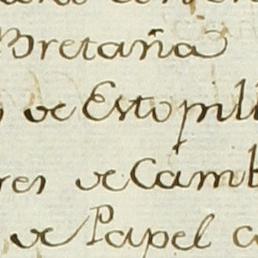 Bretaña
de Estopill
res de Camb
de Papel c